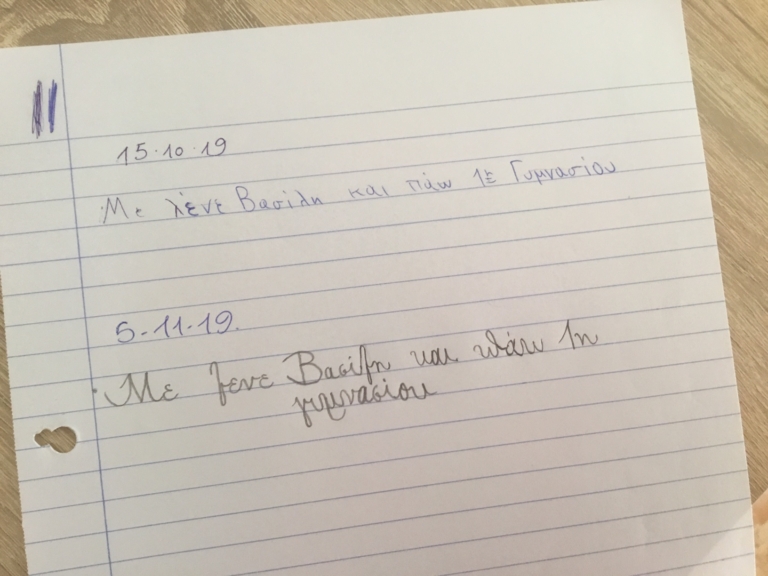 11
15.10.19
Με λένε Βασίλη και πάω 1ε Γυμνασίου
5-11-19.
Με λενε Βασιλη και πάω 1η
γυμνασίου